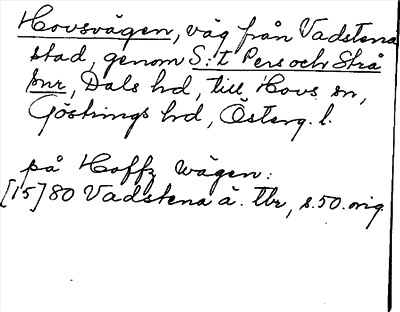 Hovsvägen, väg från Vadstena
stad, genom S:t Pers och Strå
snr, Dals hd, till Hovs sn,
Göstrings hd, Österg. l.
på Hoffz wägen:
[15]80 Vadstena ä. Tbr, s. 50. orig.